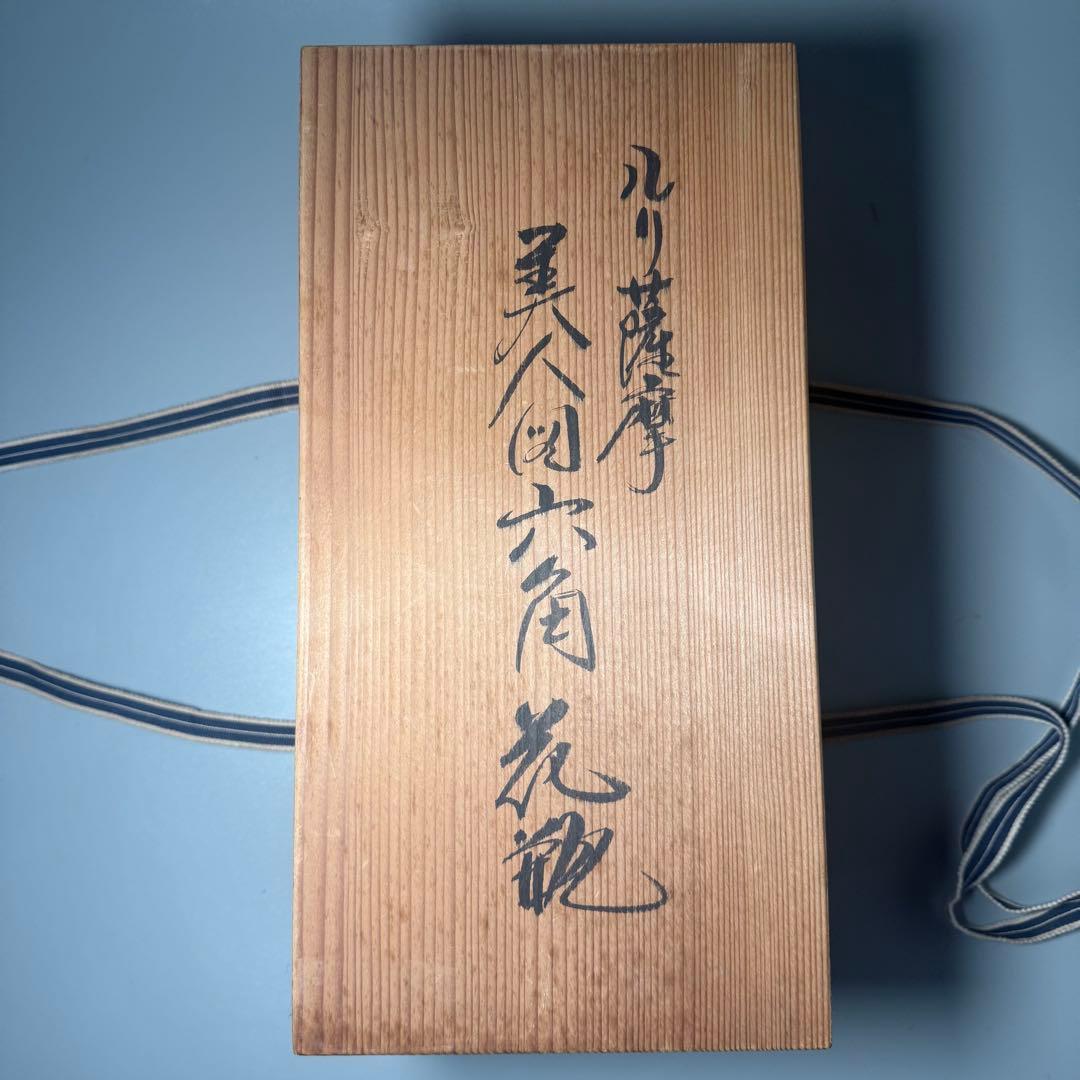 ルリ薩摩
美人図六角花瓶